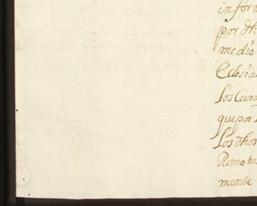 infor
por dh
medio
Eclesia
los Cura
que por
los dhos
Remo
mente